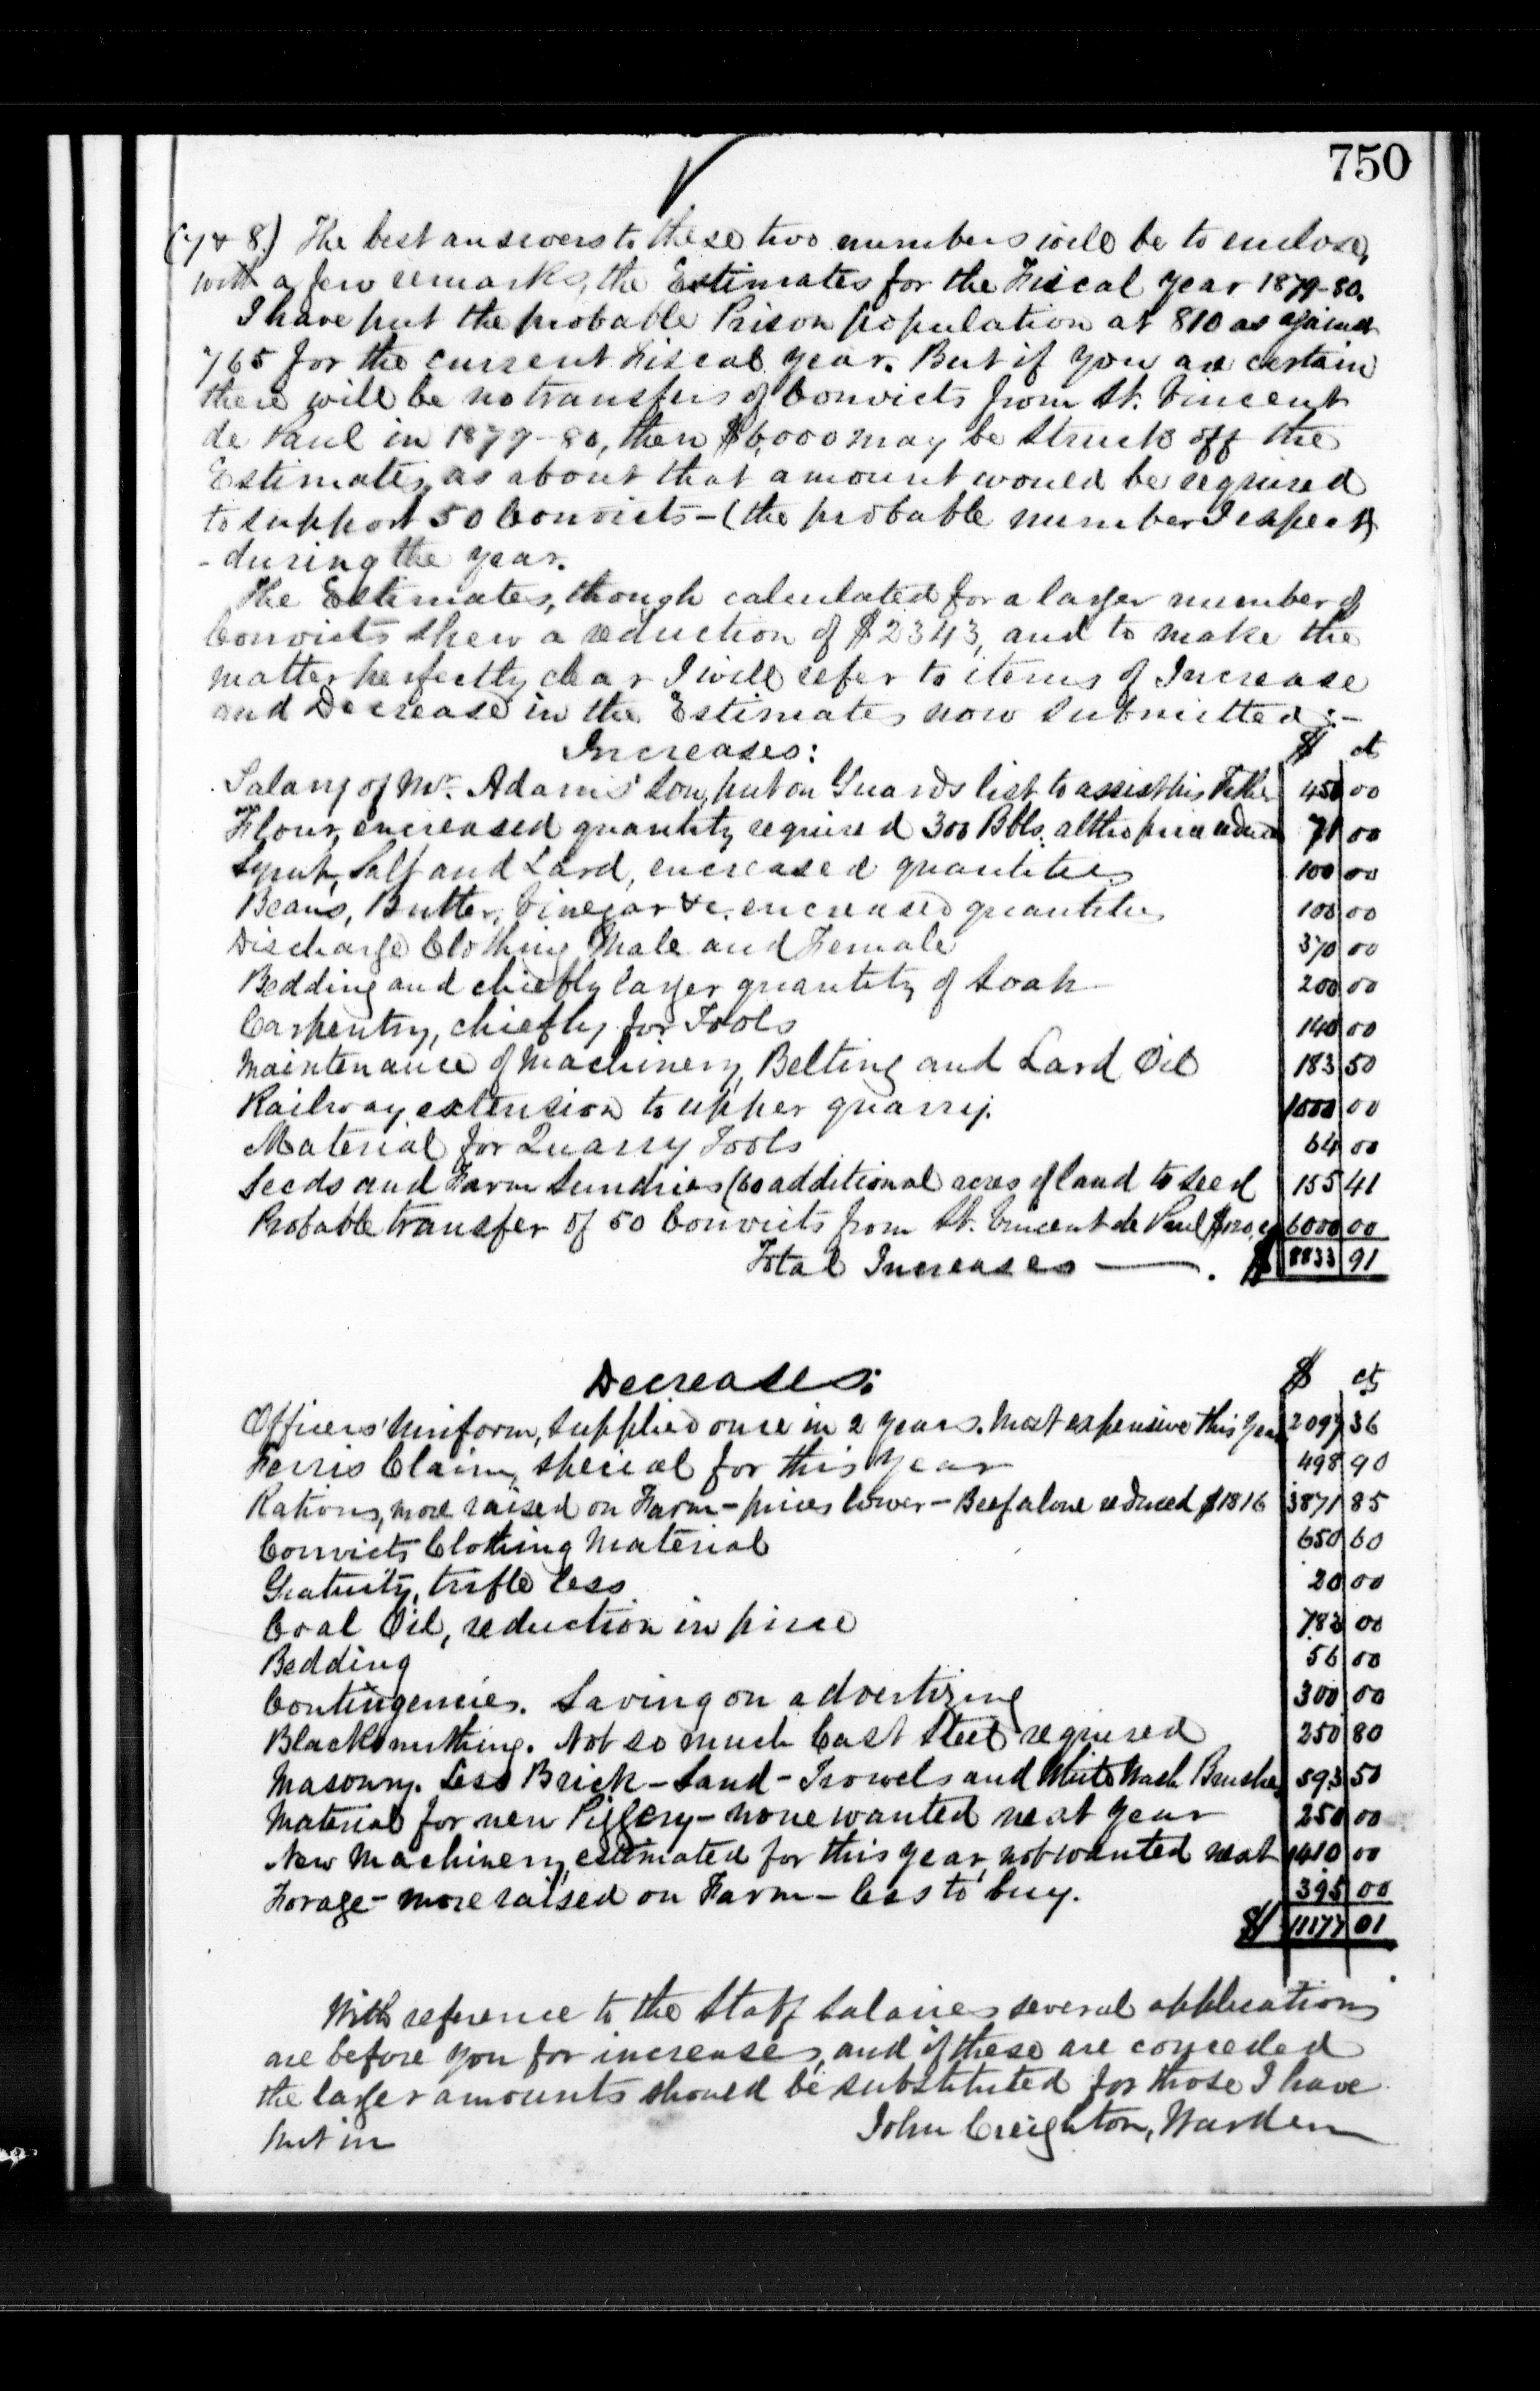 750
(7 & 8) The best answers to these two numbers will be to enclose,
with a few remarks, the Estimates for the Fiscal Year 1879-80.
I have put the probable Prison population at 810 as against
765 for the current Fiscal year. But if you are certain
there will be no transfers of Convicts from St. Vincent
de Paul in 1879-80, then $6,000 may be struck off the
Estimates, as about that amount would be required
to support 50 Convicts - (the probable number I expect)
- during the year.
The Estimates, though calculated for a larger number of
Convicts shew a reduction of $2343, and to make the
matter perfectly clear I will refer to items of Increase
and Decrease in the Estimates now submitted :-
Increases: $ ct
Salary of Mr. Adams' Son, put on Guards list to assist his Father 450 00
Flour, encreased quantity required 300 Bbls. altho price reduced 71 00
Syrup, Salt and Lard, encreased quantities 100 00
Beans, Butter, Vinegar &c. encreased quantities 100 00
Discharge Clothing Male and Female 370 00
Bedding and chiefly larger quantity of Soap 200 00
Carpentry, chiefly for Tools 140 00
Maintenance of Machinery, Belting and Lard Oil 183 50
Railway extension to upper quarry. 1000 00
Material for Quarry Tools 64 00
Seeds and Farm Sundries (60 additional acres of land to seed 155 41
Probable transfer of 50 Convicts from St. Vincent de Paul $120, 6000 00
Total Increases — . $ 8833 91
Decreases: $ cts
Officers' Uniform, supplied once in 2 years. Most expensive this Year 2097 36
Ferris Claim, special for this Year 498 90
Rations, more raised on Farm - prices lower - Beef alone reduced $1816 3871 85
Convicts Clothing Material 650 60
Gratuity, trifle less 20 00
Coal Oil, reduction in price 783 00
Bedding 56 00
Contingencies. Saving on advertizing 300 00
Blacksmithing. Not so much Cast Steel required 250 80
Masonry. Less Brick - Sand - Trowels and White Wash Brushes 593 50
Material for new Piggery - none wanted next Year 250 00
New Machinery, estimated for this year, not wanted next 1410 00
Forage - more raised on Farm - less to buy. 395 00
$ 11177 01
With reference to the Staff Salaries several applications
are before you for increases, and if these are conceded
the larger amounts should be substituted for those I have
put in
John Creighton, Warden